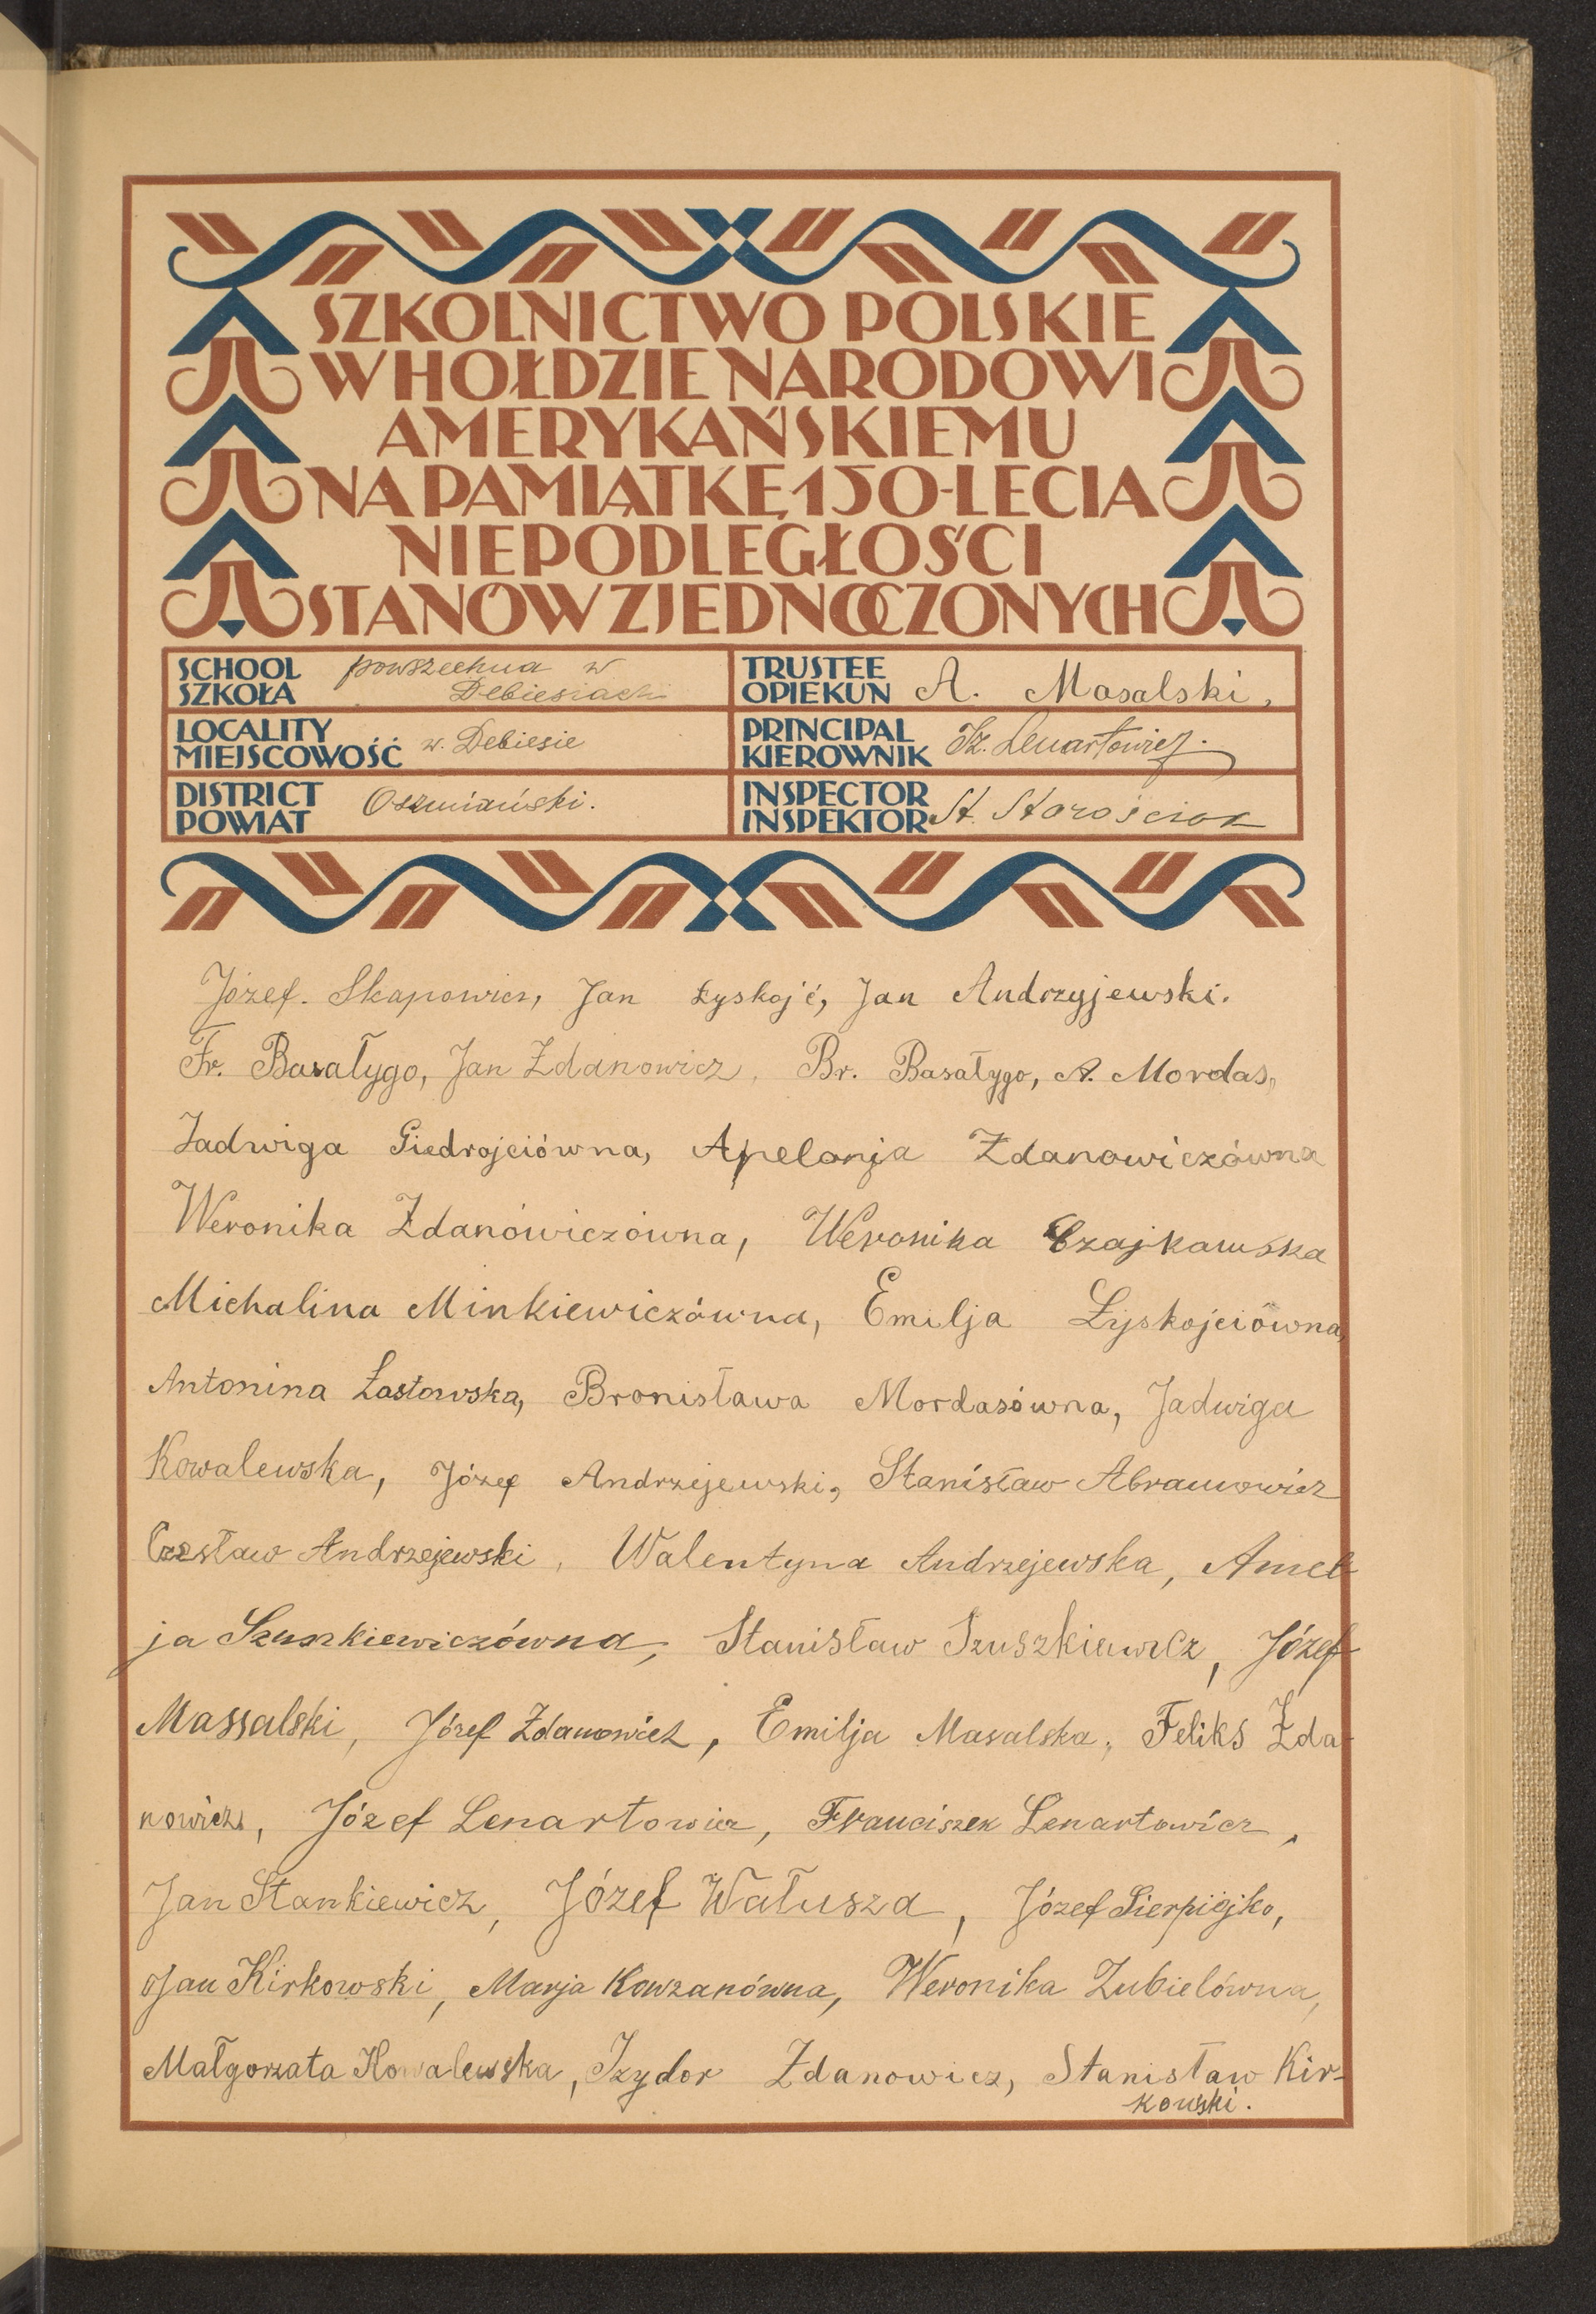 SZKOLNICTWO POLSKIE
W HOŁDZIE NARODOWI
AMERYKAŃSKIEMU
NA PAMIĄTKĘ 150-LECIA
NIEPODLEGŁOŚCI
STANÓW ZJEDNOCZONYCH
SCHOOL
SZKOŁA
powszechna w
Debiesiach
TRUSTEE
OPIEKUN
A. Masalski,
LOCALITY
MIEJSCOWOŚĆ
w. Debiesie
PRINCIPAL
KIEROWNIK
Lenartowicz.
DISTRICT
POWIAT
Oszmiański.
INSPECTOR
INSPEKTOR
St. Starościak
Józef. Skapowicz, Jan Łyskojć, Jan Andrzyjewski.
Fr. Basałygo, Jan Zdanowicz, Br. Basałygo, A. Mordas,
Jadwiga Giedrojciówna, Apelonja Żdanowiczówna
Weronika Żdanowiczówna, Weronika Czajkawska
Michalina Minkiewiczówna, Emilja Łyskojciówna,
Antonina Łastowska, Bronisława Mordasówna, Jadwiga
Kowalewska, Józef Andrzejewski, Stanisław Abramowicz
Czesław Andrzejewski, Walentyna Andrzejewska, Amel
ja Szuszkiewiczówna, Stanisław Szuszkiewicz, Józef
Massalski, Józef Żdanowicz, Emilja Masalska, Feliks Żda-
nowicz, Józef Lenartowicz, Franciszek Lenartowicz,
Jan Stankiewicz, Józef Wałusza, Józef Sierpiejko,
Jan Kirkowski, Marja Kowzanówna, Weronika Zubielówna,
Małgorzata Kowalewska, Izydor Żdanowicz, Stanisław Kir-
kowski.